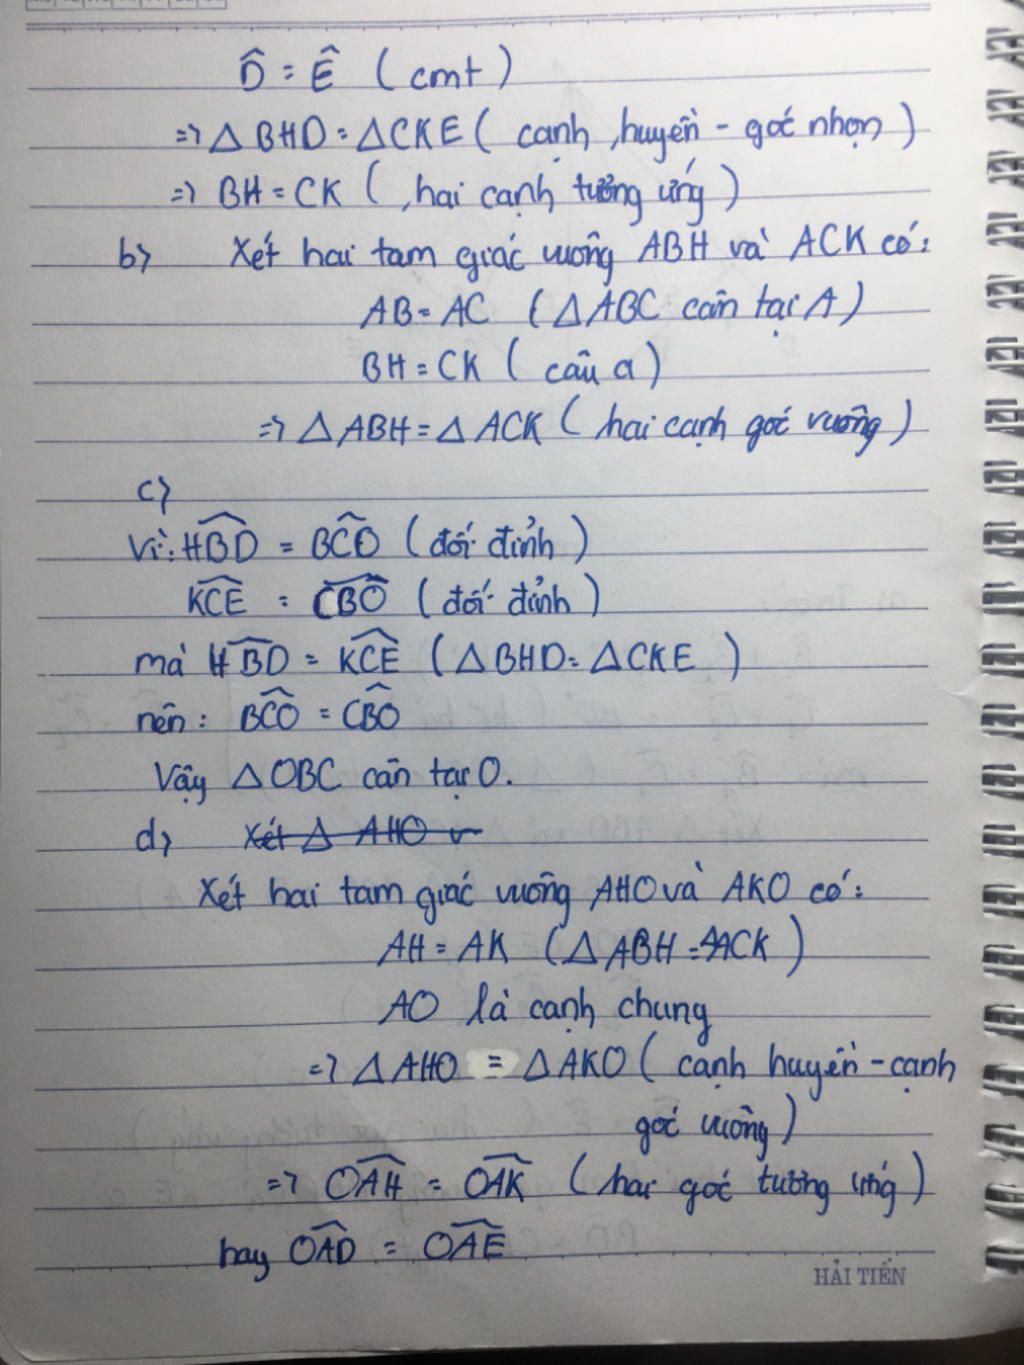 D̂ = Ê (cmt)
=> △ BHD = △CKE (cạnh huyền - góc nhọn)
=> BH = CK (hai cạnh tương ứng)
b) Xét hai tam giác vuông ABH và ACK có:
AB = AC (△ABC cân tại A)
BH = CK (câu a)
=> △ ABH = △ ACK (hai cạnh góc vuông)
c)
Vì: HBD = BCO (đối đỉnh)
KCE = CBO (đối đỉnh)
mà HBD = KCE (△BHD = △CKE)
nên: BCO = CBO
Vậy △OBC cân tại O.
d) Xét △ AHO v
Xét hai tam giác vuông AHO và AKO có:
AH = AK (△ ABH = ACK)
AO là cạnh chung
=> △ AHO = △AKO (cạnh huyền - cạnh
góc vuông)
=> OAH = OAK (hai góc tương ứng)
hay OAD = OAE
HẢI TIẾN